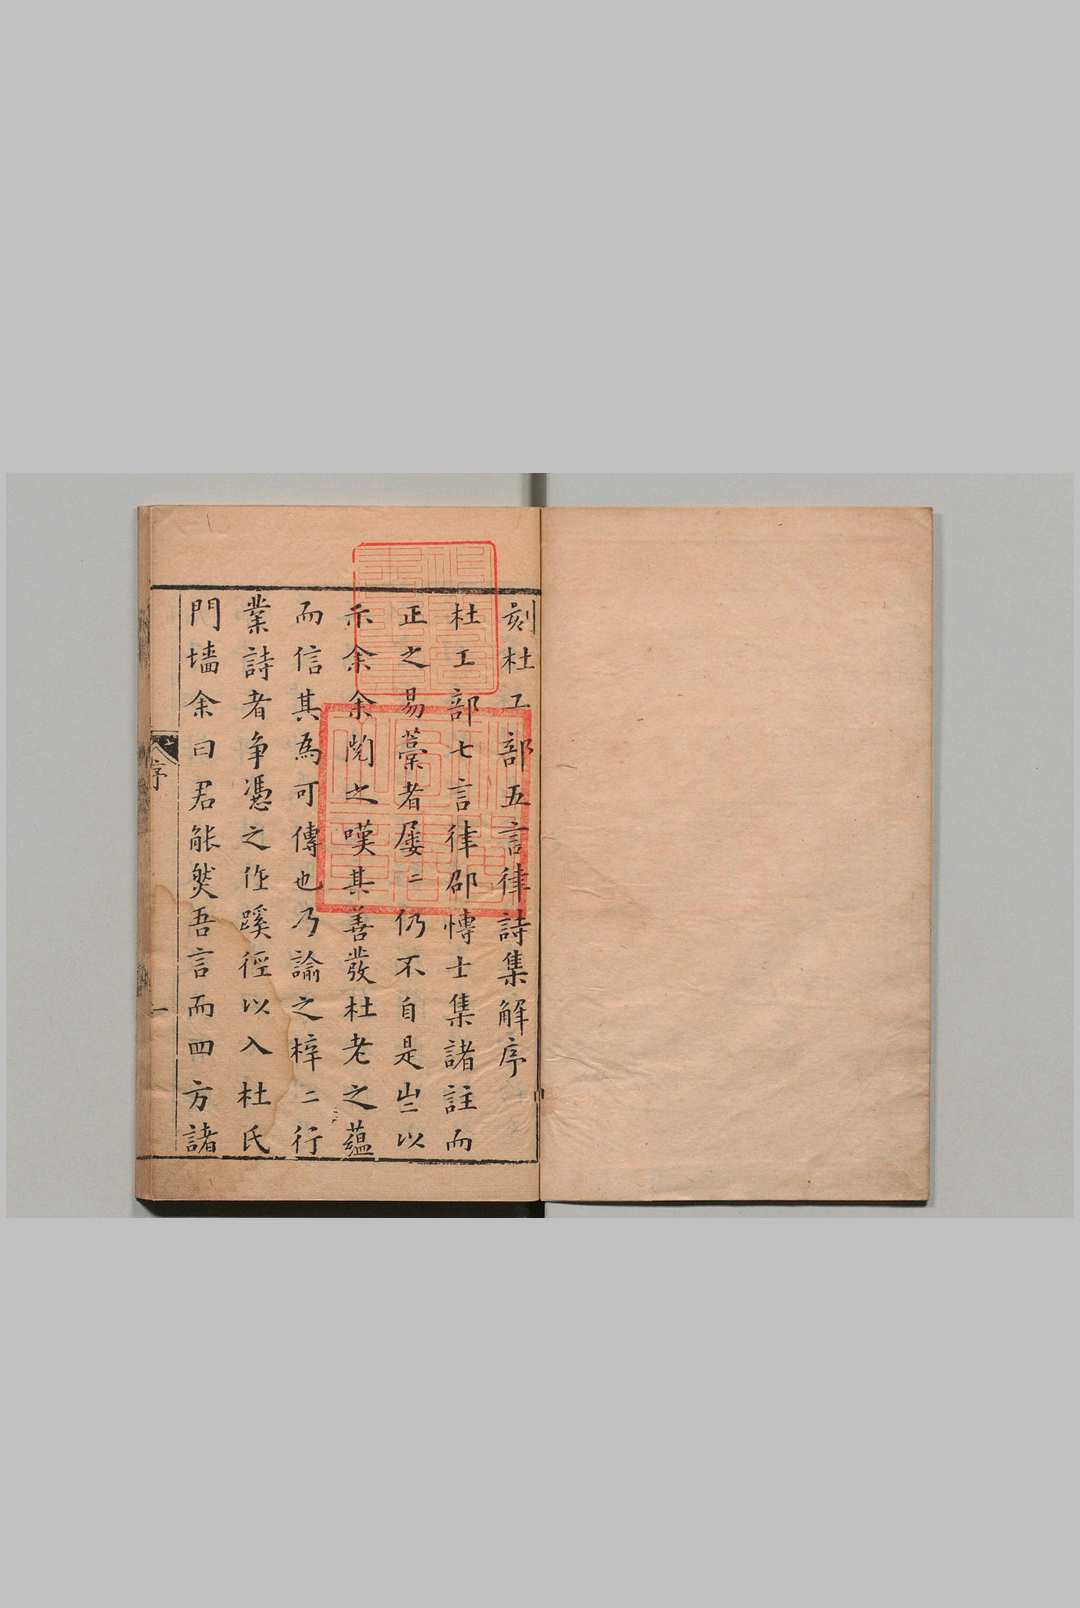 刻杜工部五言律詩集解序
杜工部七言律邵愽士集諸註而
正之易藁者屡二仍不自是出以
示余余閲之嘆其善發杜老之蘊
而信其為可傳也乃諭之梓二行
業詩者争憑之作蹊徑以入杜氏
門墻余曰君能然吾言而四方諸
序
一